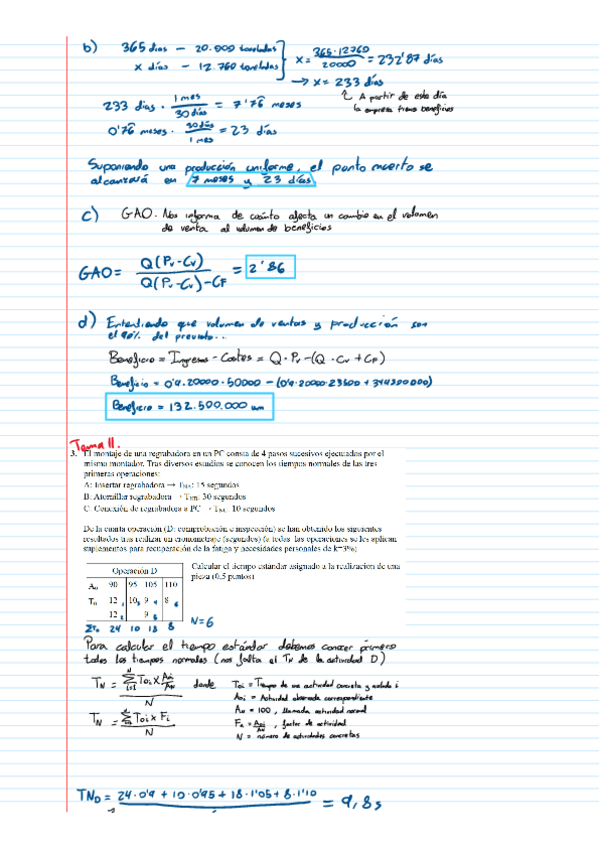 b) 365 días – 20.000 toneladas
x días – 12.760 toneladas
x = 365·12760 / 20000 = 232'87 días
→ x = 233 días
A partir de este día
la empresa tiene beneficios
233 días · 1 mes / 30 días = 7'76 meses
0'76 meses · 30 días / 1 mes = 23 días
Suponiendo una producción uniforme, el punto muerto se
alcanzará en 7 meses y 23 días.
c) GAO. Nos informa de cuánto afecta un cambio en el volumen
de venta al volumen de beneficios
GAO = Q(Pv-Cv) / Q(Pv-Cv)-CF = 2'86
d) Entendiendo que volumen de ventas y producción son
el 90% del previsto...
Beneficio = Ingresos - Costes = Q · Pv - (Q · Cv + CF)
Beneficio = 0'9·20000·50000 – (0'9·20000·23500 +
Beneficio = 132.500.000 um
Tema 11.
3. El montaje de una regrabadora en un PC consta de 4 pasos sucesivos ejecutados por el
mismo montador. Tras diversos estudios se conocen los tiempos normales de las tres
primeras operaciones:
A: Insertar regrabadora → TNA: 15 segundos
B: Atornillar regrabadora → TNB: 30 segundos
C: Conexión de regrabadora a PC → TNC: 10 segundos
De la cuarta operación (D: comprobación e inspección) se han obtenido los siguientes
resultados tras realizar un cronometraje (segundos) (a todas las operaciones se les aplican
suplementos para recuperación de la fatiga y necesidades personales de k=3%)
Calcular el tiempo estándar asignado a la realización de una
pieza (0,5 puntos)
Operación D
Ao 90 95 105 110
To 12 10 9 8
12 9
ΣTo 24 10 18 8
N=6
Para calcular el tiempo estándar debemos conocer primero
todos los tiempos normales (nos falta el TN de la actividad D)
TN = Σ Toi x Aoi/AN / N donde
Toi = Tiempo de una actividad concreta y
Aoi = Actividad observada correspondiente
AN = 100, llamada actividad normal
TN = Σ Toi x Fi / N
Fi = Aoi/AN, factor de actividad
N = número de actividades concretas
TND = 24·0'9 + 10·0'95 + 18·1'05 + 8·1'10 = 9,8s